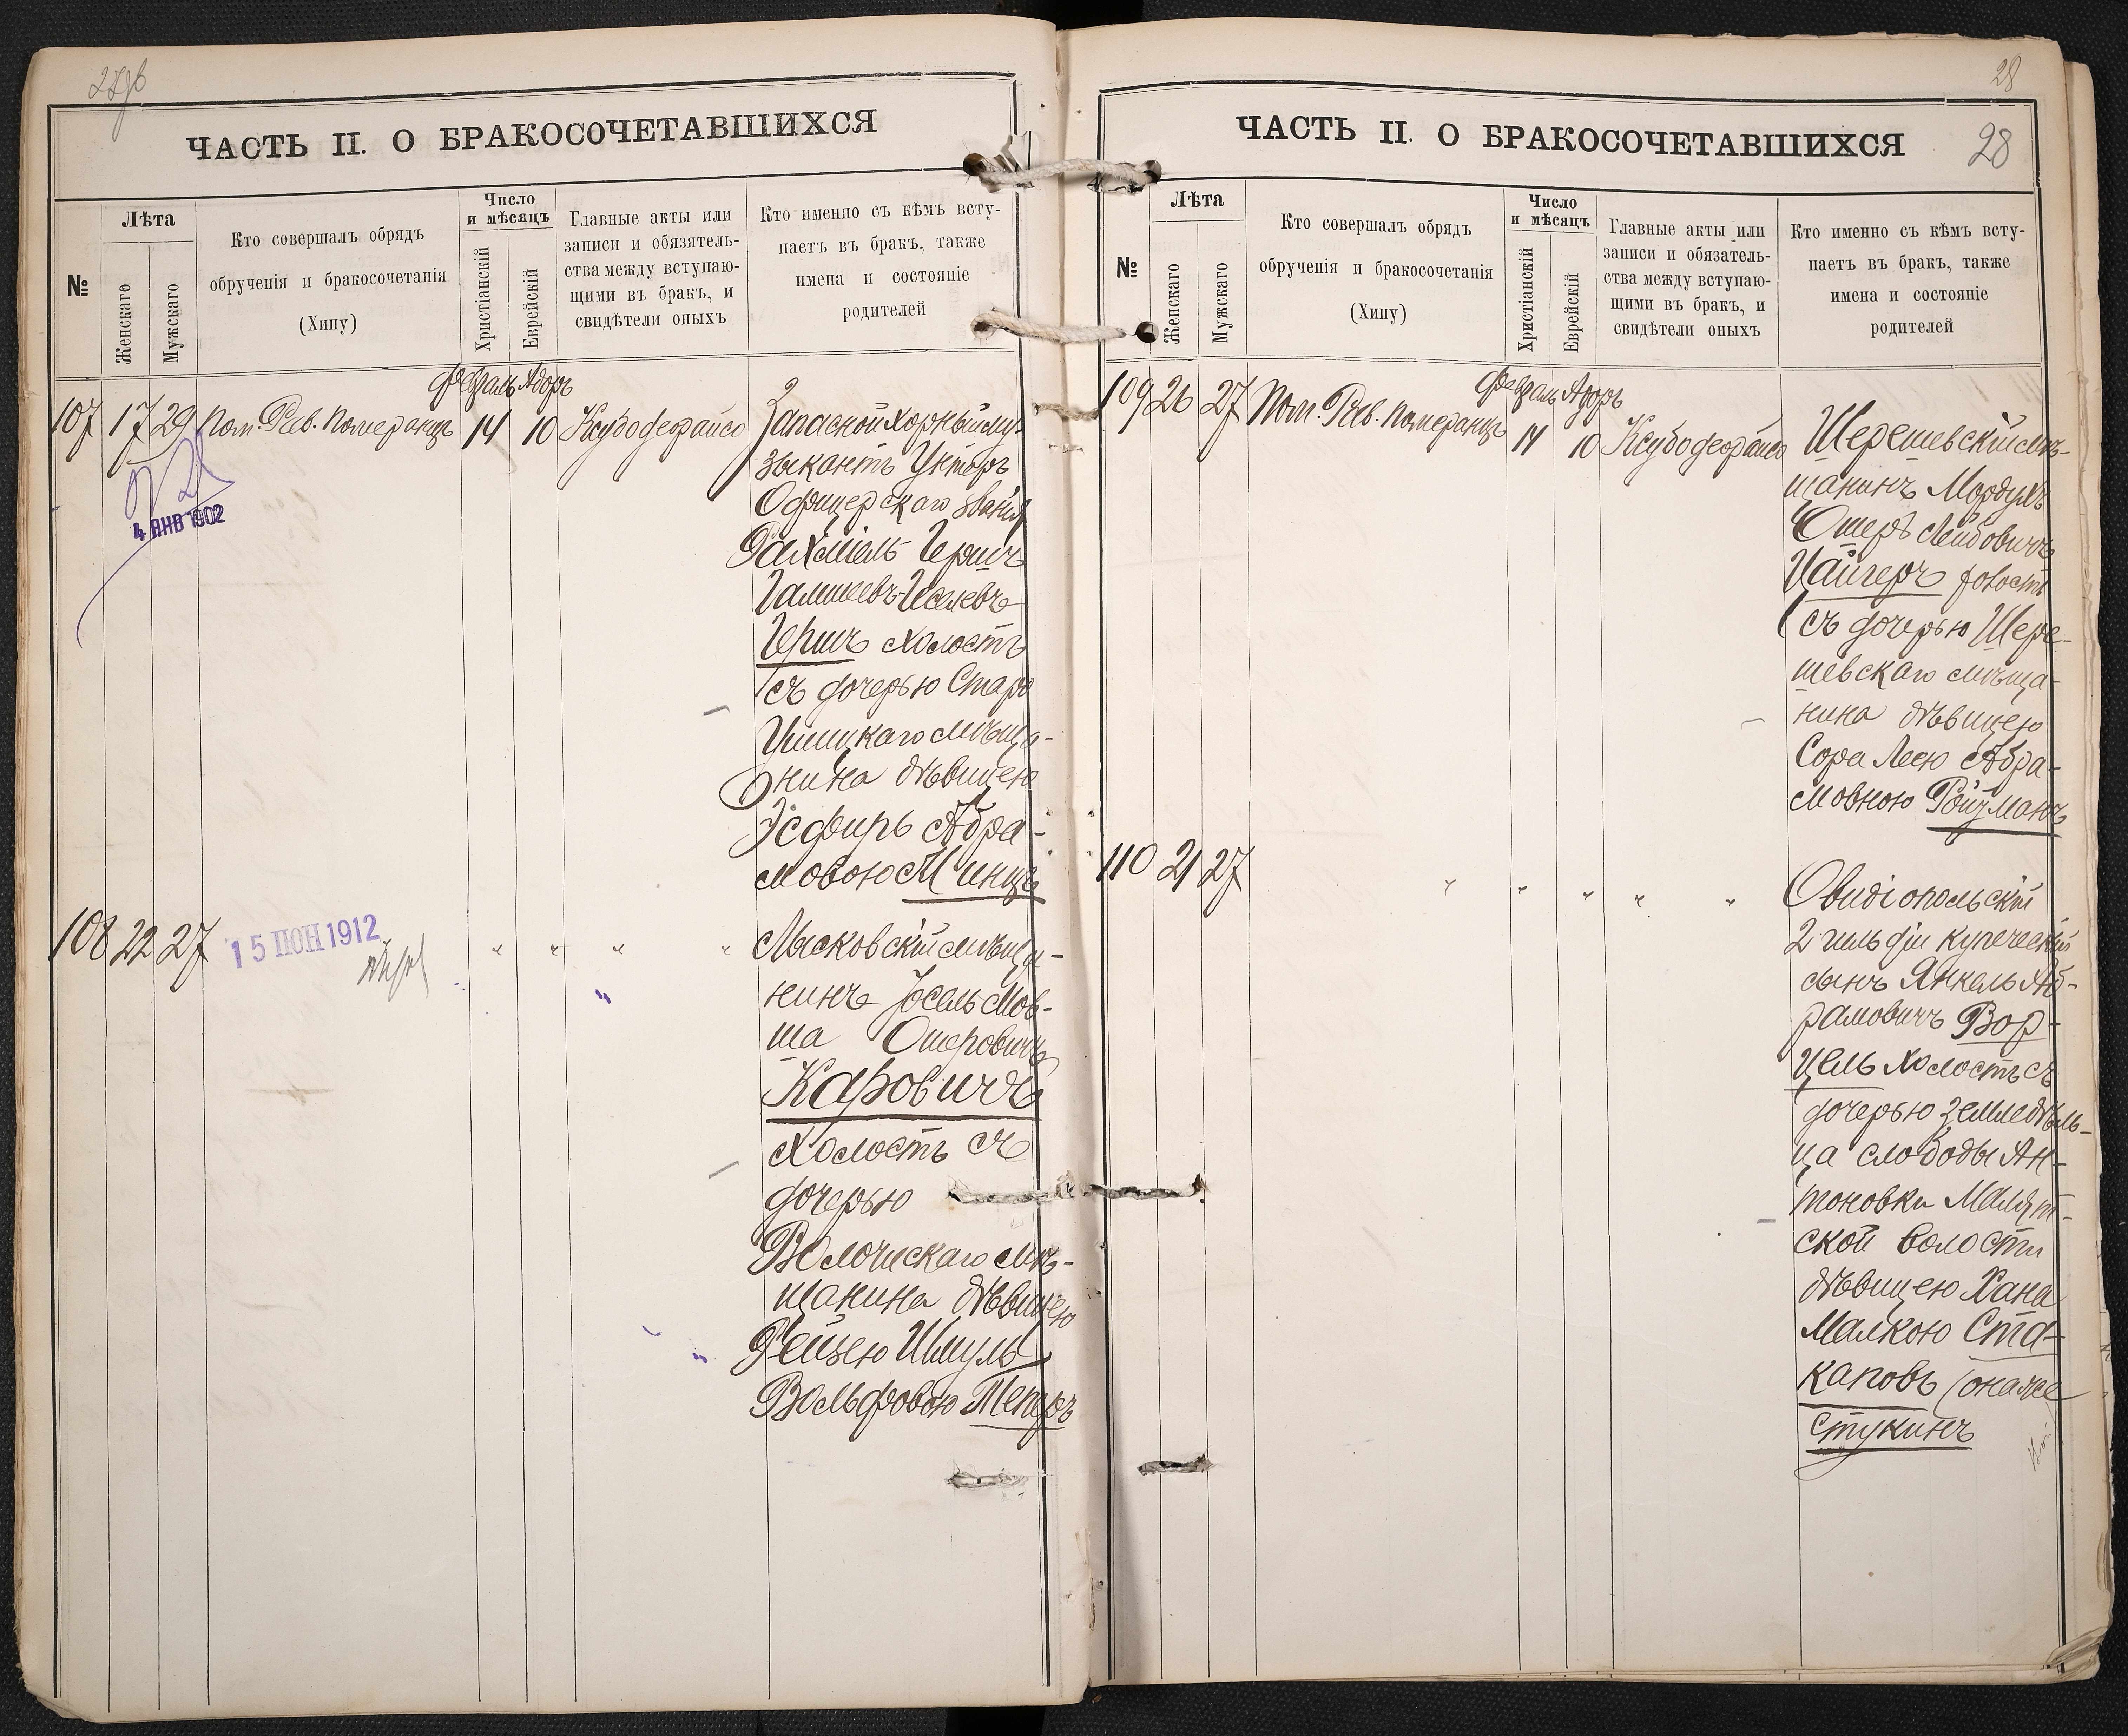 27об
ЧАСТЬ II. О БРАКОСОЧЕТАВШИХСЯ
№
Лѣта
Женскаго
Мужскаго
Кто совершалъ обрядъ
обрученія и бракосочетанія
(Хипу)
Число
и мѣсяцъ
Христіанскій
Еврейскій
Главные акты или
записи и обязатель-
ства между вступаю-
щими въ бракъ, и
свидѣтели оныхъ
Кто именно съ кѣмъ всту-
паетъ въ бракъ, также
имена и состояніе
родителей
Февраль Адоръ
107 17 29 Пом. Рав. Померанцъ 14 10 Ксубо дефайсо
Запасной Хорный му-
зыкантъ Унтеръ
Офицерскаго званія
Рахміель Герше
Галишевъ-Иселевъ
Гершъ холостъ
съ дочерью Старо
Ушицкаго мѣща-
нина дѣвицею
Эсфирь Абра-
мовою Минцъ
4 ЯНВ 1902
108 22 27
15 ИЮН 1912
" " " "
Лысковскій мѣща-
нинъ Іосель Мов-
ша Ошеровичъ
Каровичъ
холостъ съ
дочерью
Волочискаго мѣ-
щанина дѣвицею
Рейзею Шмуль
Вольфовою Теперъ
28
28
ЧАСТЬ II. О БРАКОСОЧЕТАВШИХСЯ
№
Лѣта
Женскаго
Мужскаго
Кто совершалъ обрядъ
обрученія и бракосочетанія
(Хипу)
Число
и мѣсяцъ
Христіанскій
Еврейскій
Главные акты или
записи и обязатель-
ства между вступаю-
щими въ бракъ, и
свидѣтели оныхъ
Кто именно съ кѣмъ всту-
паетъ въ бракъ, также
имена и состояніе
родителей
Февраль Адоръ
109 26 27 Пом. Рав. Померанцъ 14 10 Ксубо дефайсо
Шерешевскій мѣ-
щанинъ Мордухъ
Ошеръ Лейбовичъ
Цайгеръ холостъ
съ дочерью Шере-
шевскаго мѣща-
нина дѣвицею
Сора Леею Абра-
мовною Ройзманъ
110 21 27 " " " " "
Овидіопольскій
2 гильдіи купеческій
сынъ Янкель Аб-
рамовичъ Вор-
цель холостъ съ
дочерью земледѣль-
ца слободы Ан-
тоновки Малят-
ской волости
дѣвицею Хана
Малкою Ста-
каповъ (она же
Стукинъ